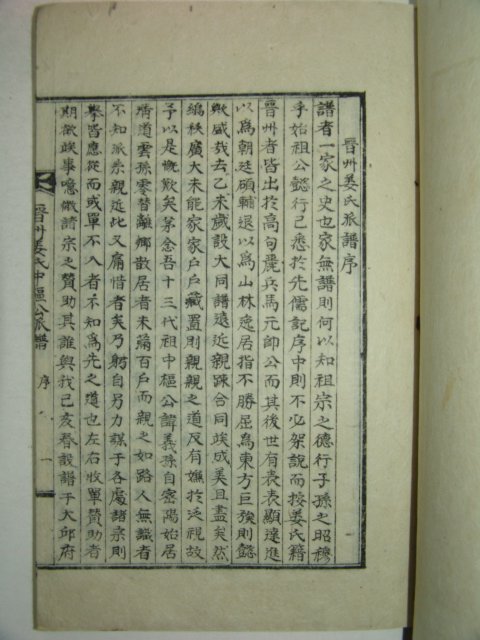 晉州姜氏派譜序
譜者一家之史也家無譜則何以知祖宗之德行子孫之昭穆
乎始祖公懿行已悉於先儒記序中則不必架說而按姜氏籍
晉州者皆出於高句麗兵馬元帥公而其後世有表表顯達進
以爲朝廷碩輔退以爲山林逸居指不勝屈爲東方巨族則懿
歟盛哉去乙未歲設大同譜遠近親疎合同竣成美且盡矣然
編秩廣大未能家家戶戶藏置則親親之道反有嫌於泛視故
予以是慨歎矣茅念吾十三代祖中樞公諱義孫自密陽始居
淸道雲孫零替離鄕散居者未滿百戶而親之如路人無識者
不知派系親近此又痛惜者矣乃躬自另力謀于各處諸宗則
擧皆應從而或單不入者不知爲先之道也左右收單贊助者
期歲竣事噫微諸宗之贊助其誰與我己亥春設譜于大邱府
晉州姜氏中樞公派譜 序 一